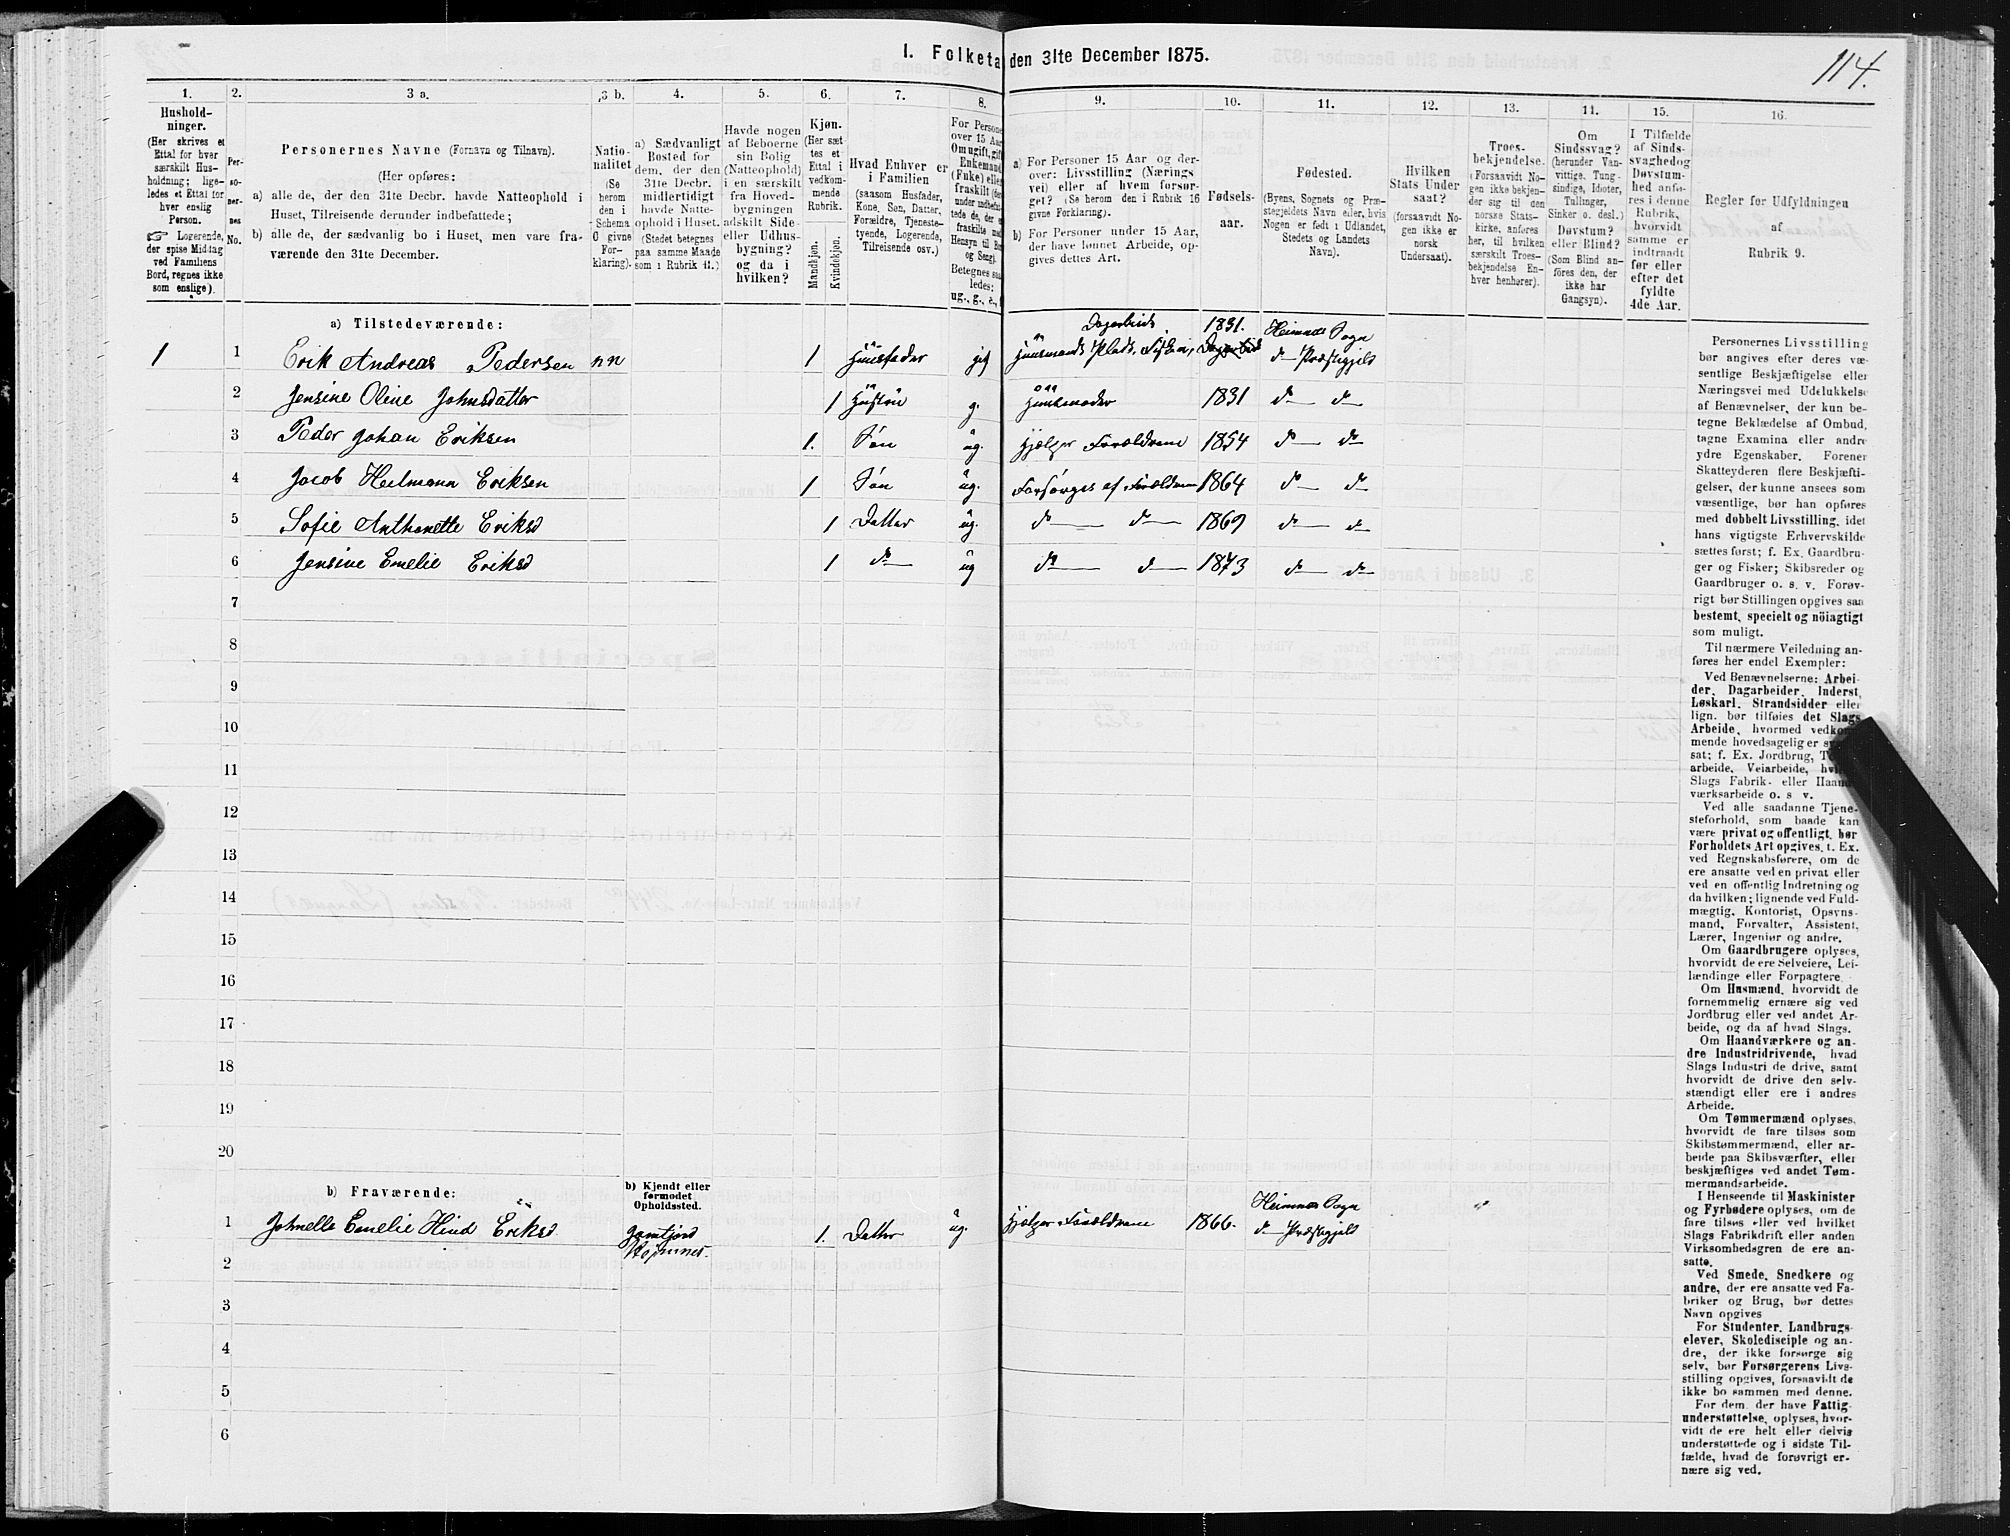 1. Folketa den 31te December 1875.
114.
1.
Hushold-
ninger.
(Her skrives et
Ettal for hver
særskilt Hus-
holdning; lige-
ledes et Ettal for
hver enslig
Person.
☞ Logerende,
der spise Middag
ved Familiens
Bord, regnes ikke
som enslige).
2.
Per-
so-
ner-
nes
No.
3 a.
Personernes Navne (Fornavn og Tilnavn).
(Her opføres:
a) alle de, der den 31te Decbr. havde Natteophold i
Huset, Tilreisende derunder indbefattede;
b) alle de, der sædvanlig bo i Huset, men vare fra-
værende den 31te December.
3 b.
Natio-
nalitet
(Se
herom
den i
Schema
O givne
For-
klaring).
4.
a) Sædvanligt
Bosted for
dem, der den
31te Decbr.
midlertidigt
havde Natte-
ophold i Huset.
(Stedet betegnes
paa samme Maade
som i Rubrik 11.)
5.
Havde nogen
af Beboerne
sin Bolig
(Natteophold)
i en særskilt
fra Hoved-
bygningen
adskilt Side
eller Udhus-
bygning?
og da i
hvilken?
6.
Kjøn.
(Her sæt-
tes et
Ettal i
vedkom-
mende
Rubrik.
Mandkjøn.
Kvindekjøn.
7.
Hvad Enhver er
i Familien
(saasom Husfader,
Kone, Søn, Datter,
Forældre, Tjeneste-
tyende, Logerende,
Tilreisende osv.)
8.
For Persone
over 15 Aar
Om ugift, gift
Enkemand
(Fuke) elle
fraskilt (der
under indbefat-
tede de, der e
fraskilte med
Hensyn til Bo
og Seng).
Betegnes saa
ledes:
ug., g., e., f
9.
a) For Personer 15 Aar og der-
over: Livsstilling (Nærings
vei) eller af hvem forsør-
get? (Se herom den i Rubrik 16
givne Forklaring).
b) For Personer under 15 Aar,
der have lønnet Arbeide, op-
gives dettes Art.
10.
Fødsels-
aar.
11.
Fødested.
(Byens, Sognets og Præ-
stegjeldets Navn eller, hvis
Nogen er født i Udlandet,
Stedets og Landets
Navn).
12.
Hvilken
Stats Under
saat?
(forsaavidt No-
gen ikke er
norsk
Undersaat).
13.
Troes-
bekjendelse.
(Forsaavidt No-
gen ikke bekjen-
der sig til den
norske Stats-
kirke, anføres
her, til hvilken
særskilt Troes-
bekjendelse En-
hver henhører).
14.
Om
Sindssvag?
(herunder Van-
vittige, Tung-
sindige, Idioter,
Tullinger,
Sinker o. desl.)
Døvstum?
eller Blind?
(Som Blind an-
føres den, der
ikke har
Gangsyn).
15.
I Tilfælde
af Sinds-
svaghed og
Døvstum-
hed anfø-
res i denne
Rubrik,
hvorvidt
samme er
indtraadt
før eller
efter det
fyldte
4de Aar.
16.
Regler for Udfyldningen
af
Rubrik 9.
a) Tilstedeværende:
1 1 Erik Andreas Pedersen nn 1 Huusfader gift Huusmand Plads, Fisker, Dagarbeid 1831. Heimnæs Sogn d- Præstegjeld
2 Jensine Oline Johnsdatter 1 Hustru g. Huusmoder 1831 d- d-
3 Peder Johan Eriksen 1. Søn ug. Hjælper Forældrene 1854 d- d-
4 Jacob Heelmann Eriksen 1 Søn ug. Forsørges af Forældrene 1864 d- d-
5 Sofie Anthonette Eriksd 1 Datter ug. d- d- 1869 d- d-
6 Jensine Emelie Eriksd 1 d- ug d- d- 1873 d- d-
7
8
9
10
11
12
13
14
15
16
17
18
19
20
b) Fraværende:
b) Kjendt eller
formodet
Opholdssted.
1 Johnelle Emelie Hind Eriksd 1. Datter ug. Hjælper Forældrene 1866. Heimnæs Sogn d- Præstegjeld
2
3
4
5
6
Personernes Livsstilling
bør angives efter deres væ-
sentlige Beskjæftigelse eller
Næringsvei med Udelukkelse
af Benævnelser, der kun be-
tegne Beklædelse af Ombud,
tagne Examina eller andre
ydre Egenskaber. Forener
Skatteyderen flere Beskjæfti-
gelser, der kunne ansees som
væsentlige, bør han opføres
med dobbelt Livsstilling, idet
hans vigtigste Erhvervskilde
sættes først; f. Ex. Gaardbru-
ger og Fisker; Skibsreder og
Gaardbruger o. s. v. Forøv-
rigt bør Stillingen opgives saa
bestemt, specielt og nöiagtigt
som muligt.
Til nærmere Veiledning an-
føres her endel Exempler:
Ved Benævnelserne: Arbei-
der, Dagarbeider, Inderst,
Løskarl, Strandsidder eller
lign. bør tilføies det Slags
Arbeide, hvormed vedkom-
mende hovedsagelig er sys
sat; f. Ex. Jordbrug, T
arbeide, Veiarbeide, hvi
Slags Fabrik- eller Haan
værksarbeide o. s v.
Ved alle saadanne Tjene-
steforhold, som baade kan
være privat og offentligt, bør
Forholdets Art opgives, t. Ex.
ved Regnskabsførere, om de
ere ansatte ved en privat eller
ved en offentlig Indretning og
da hvilken; lignende ved Fuld-
mægtig, Kontorist, Opsyns-
mand, Forvalter, Assistent,
Lærer, Ingeniør og andre.
Om Gaardbrugere oplyses,
hvorvidt de ere Selveiere, Lei-
lændinge eller Forpagtere.
Om Husmænd, hvorvidt de
fornemmelig ernære sig ved
Jordbrug eller ved andet Ar-
beide, og da af hvad Slags.
Om Haandværkere og an-
dre Industridrivende, hvad
Slags Industri de drive, samt
hvorvidt de drive den selv-
stændigt eller ere i andres
Arbeide.
Om Tømmermænd oplyses,
hvorvidt de fare tilsøs som
Skibstømmermænd, eller ar-
beide paa Skibsværfter, eller
beskjæftiges ved andet Tøm-
mermandsarbeide.
I Henseende til Maskinister
og Fyrbødere oplyses, om de
fare tilsøs eller ved hvilket
Slags Fabrikdrift eller anden
Virksomhedsgren de ere an-
satte.
Ved Smede, Snedkere og
andre, der ere ansatte ved Fa-
briker og Brug, bør dettes
Navn opgives
For Studenter, Landbrugs-
elever, Skoledisciple og an-
dre, der ikke forsørge sig
selv, bør Forsørgerens Livs-
stilling opgives, forsaavidt de
ikke bo sammen med denne.
For dem, der have Fattig-
understøttelse, oplyses, hvor-
vidt de ere helt eller delvis
understøttede og i sidste Til-
fælde, hvad de forøvrigt er-
nære sig ved.